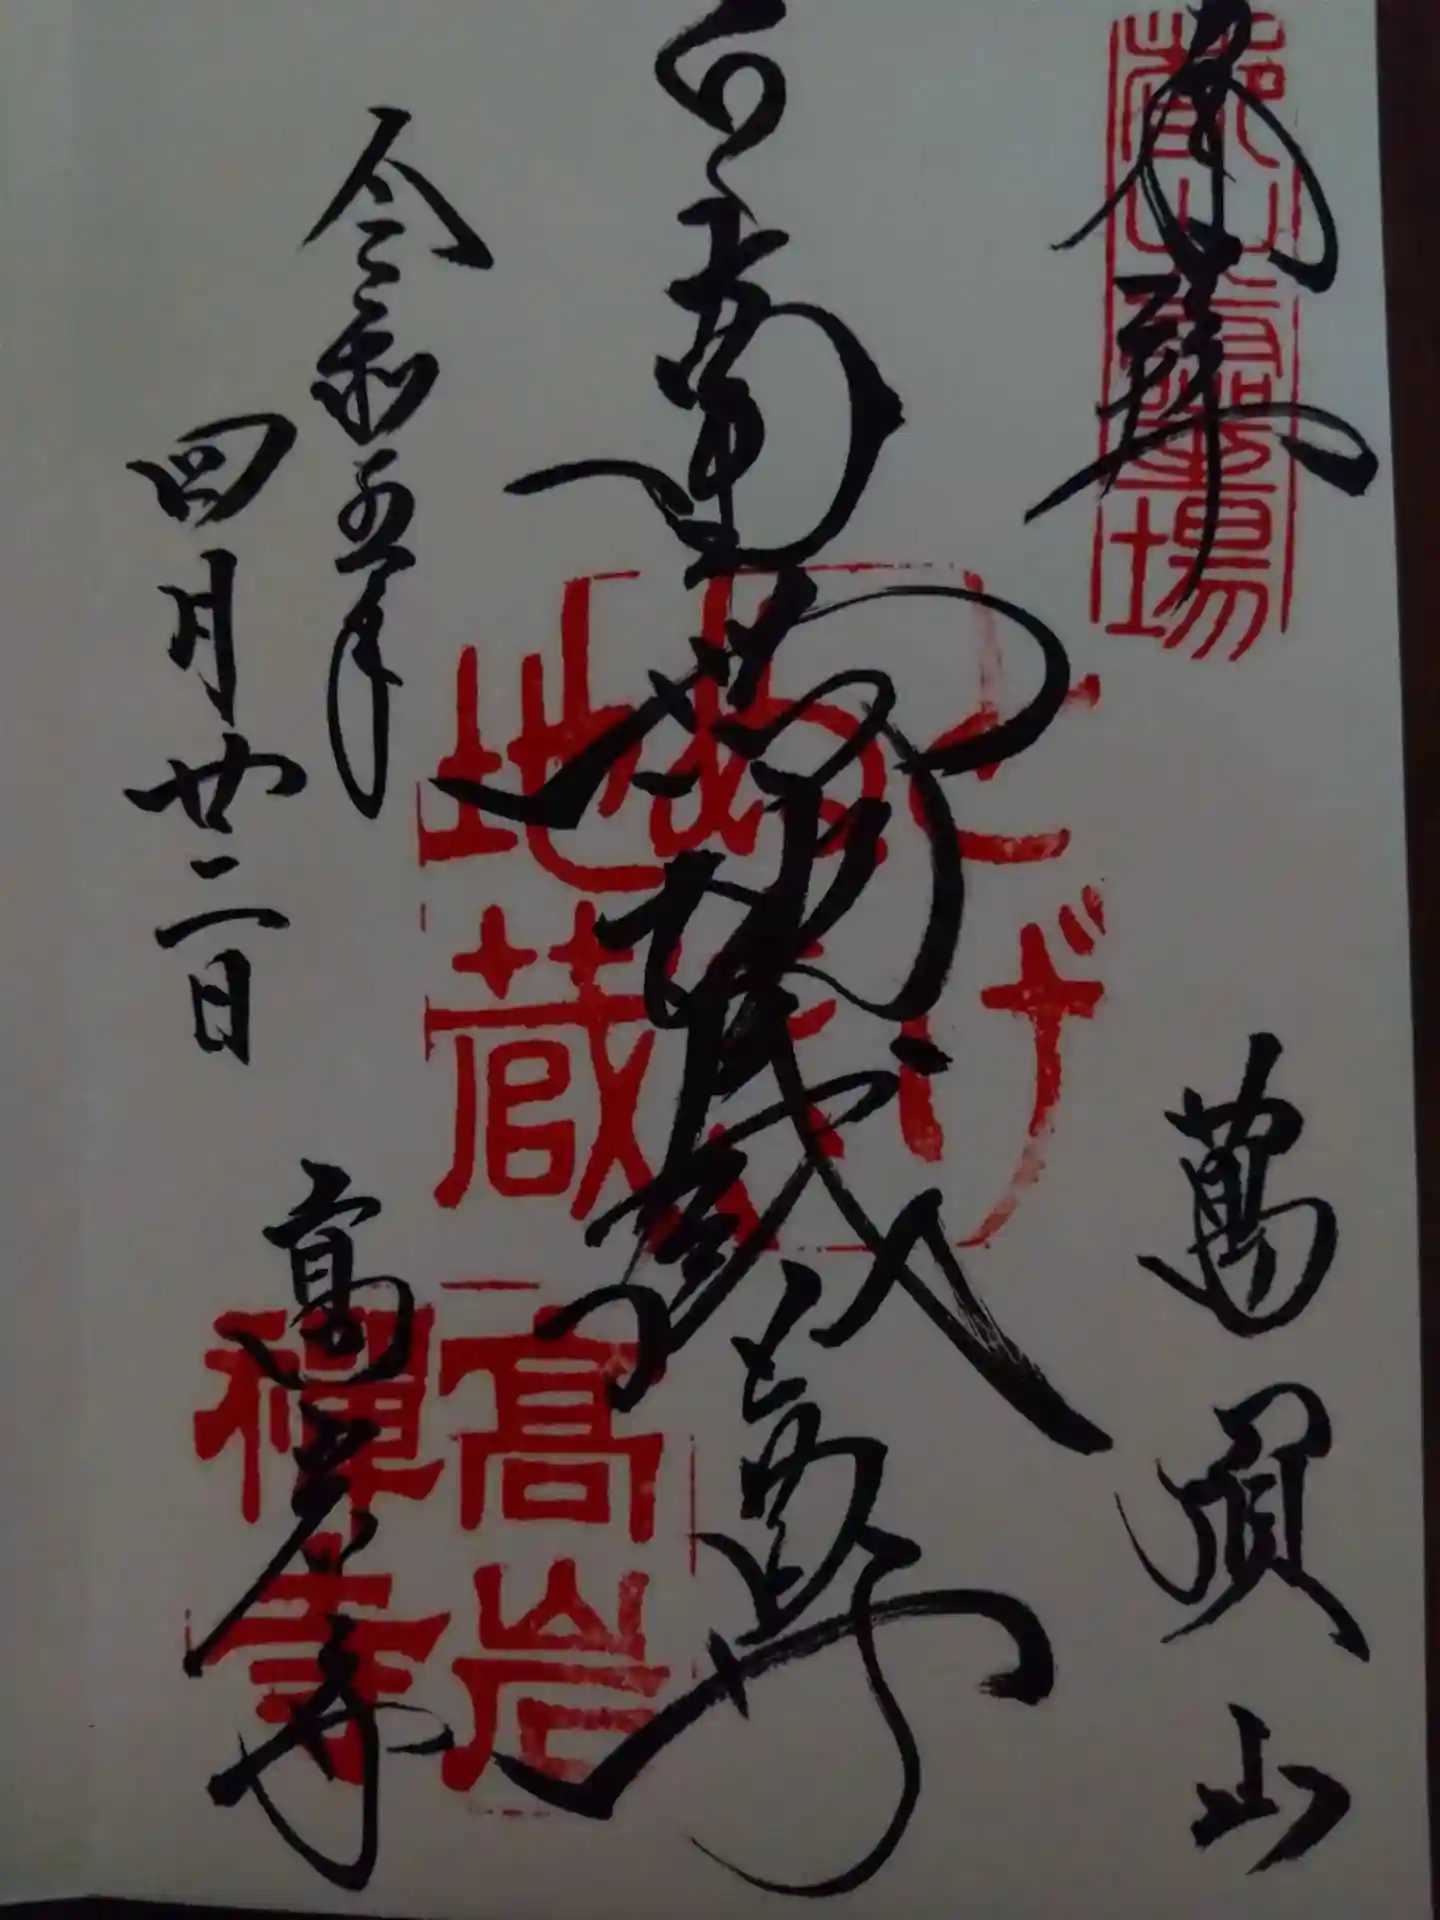 奉拝
都山霊場
萬頂山
とげ
ぬき
地蔵
高岩
禅寺
令和五年
四月廿二日
高岩寺